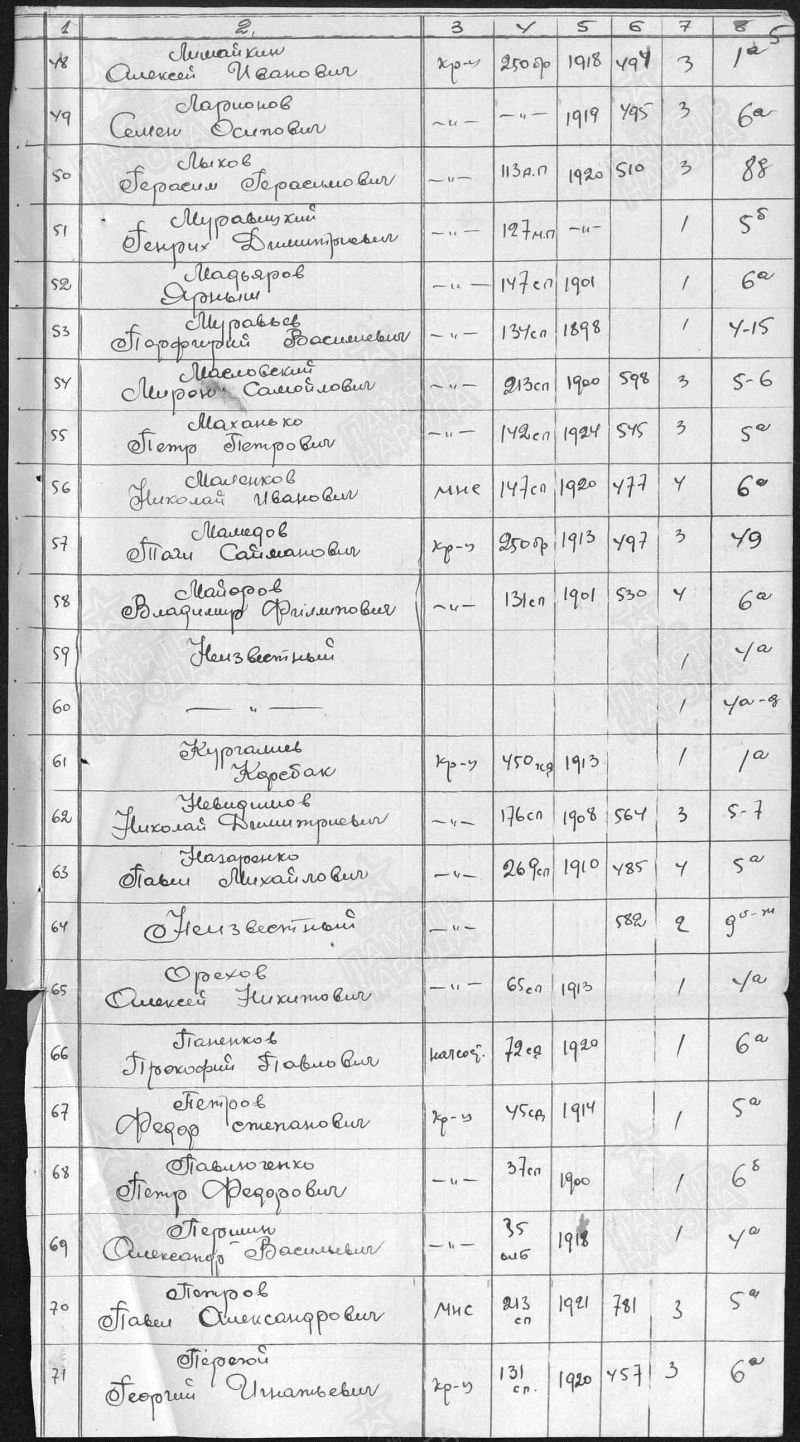 1 2. 3 4 5 6 7 8
5
48 Лимайкин
Алексей Иванович кр-ц 250 бр 1918 494 3 1а
49 Ларионов
Семен Осипович —"— —"— 1919 495 3 6а
50 Лыков
Герасим Герасимович —"— 113д.п 1920 510 3 88
51 Муравицкий
Генрих Димитриевич —"— 127м.п —"— 1 5б
52 Мадьяров
Ярныш —"— 147сп 1901 1 6а
53 Муравьев
Порфирий Василиевич —"— 134сп 1898 1 4-15
54 Масловский
Мирон Самойлович —"— 213сп 1900 598 3 5-6
55 Маханько
Петр Петрович —"— 142сп 1924 545 3 5а
56 Маленков
Николай Иванович мнс 147сп 1920 477 4 6а
57 Мамедов
Таги Сайманович кр-ц 250бр 1913 497 3 49
58 Майоров
Владимир Филипович —"— 131сп 1901 530 4 6а
59 Неизвестный 1 4а
60 —"— 1 4а-д
61 Кургалиев
Коребак кр-ц 450жд 1913 1 1а
62 Невидимов
Николай Димитриевич —"— 176сп 1908 564 3 5-7
63 Назаренко
Павел Михайлович —"— 269сп 1910 485 4 5а
64 Неизвестный —"— 582 2
65 Орехов
Алексей Никитович —"— 65сп 1913 1 4а
66 Паненков
Прокофий Павлович 72сд 1920 1 6а
67 Петров
Федор Степанович кр-ц 45сд 1914 1 5а
68 Павлюченко
Петр Федорович —"— 37сп 1900 1 6б
69 Першин
Александр Васильевич —"— 35 1918 1 4а
70 Петров
Павел Александрович мнс 213 сп 1921 781 3 5а
71
Георгий Игнатьевич кр-ц 131 сп. 1920 457 3 6а
ПАМЯТЬ НАРОДА